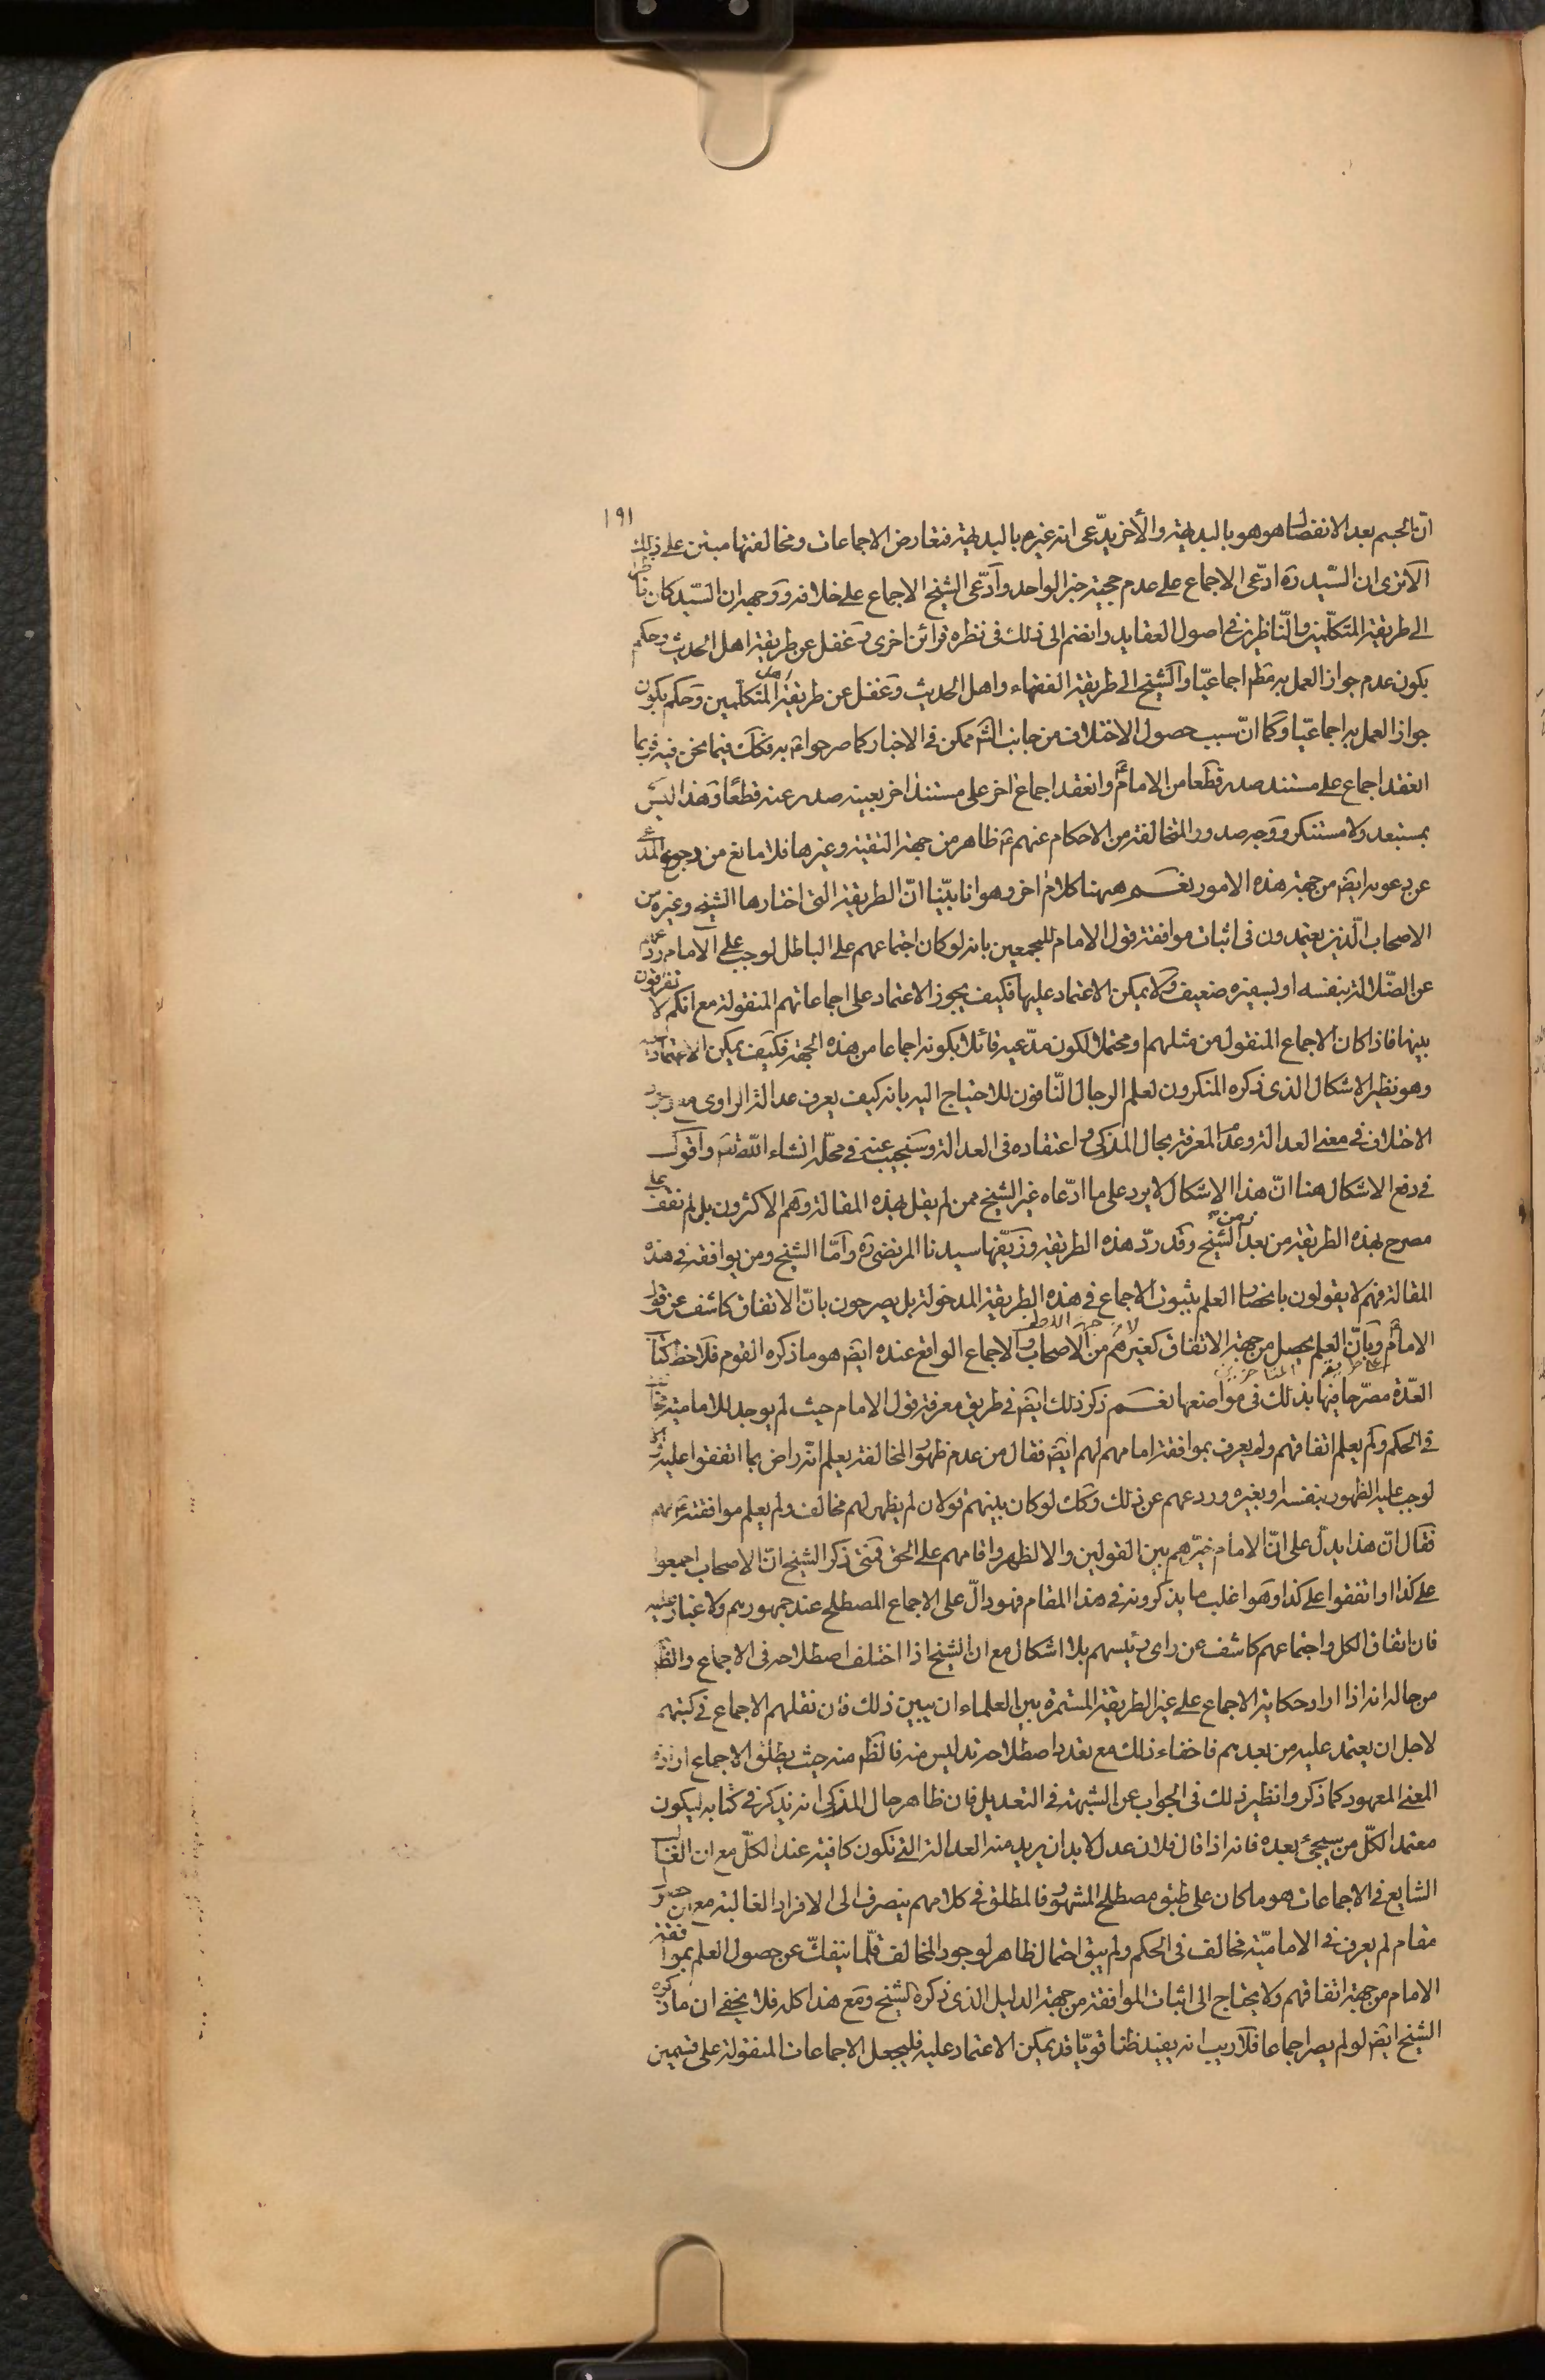 ١٩١
ان الجسم بعد الانفصال هو هو بالبديهة والأخر يدّعى انه غيره بالبديهة فتعارض الاجماعات ومخالفتها مبتن على ذلك
الا ترى ان السّيد ره ادّعى الاجماع على عدم حجية خبر الواحد وادّعى الشيخ الاجماع على خلافه ووجهه ان السّيد كان ناظرا
الى طريقة المتكلّمين والنّاظرين فى اصول العقايد وانضم الى ذلك فى نظره قرائن اخرى وغفل عن طريقة اهل الحديث وحكم
بكون عدم جواز العمل به مظم اجماعيّا والشيخ الى طريقة الفقهاء واهل الحديث وغفل عن طريقة المتكلّمين وحكم بكون
جواز العمل به اجماعيّا وكما انّ سبب حصول الاختلاف من جانب الشم ممكن فى الاخبار كما صرحوا عم به فكك فيما نحن فيه فربما
انعقد اجماع على مستند صدر قطعا من الامام ع وانعقد اجماع اخر على مستند اخر بعينه صدر عنه قطعًا وهذا ليس
بمستبعد ولا مستنكر ووجه صدور المتخالفة من الاحكام عنهم ع ظاهر من جهة التقية وغيرها فلا مانع من رجوع المدعى
عن دعويه ايضم من جهة هذه الامور نعم ههنا كلام اخر وهو انا بيّنا انّ الطريقة التى اختارها الشيخ وغيره من
الاصحاب الّذين يعتمدون فى اثبات موافقة قول الامام للمجمعين بانه لو كان اجتماعهم على الباطل لوجب على الامام ردعهم
عن الضّلالة بنفسه او بسفيره ضعيف ولا يمكن الاعتماد عليها فكيف يجوز الاعتماد على اجماعاتهم المنقولة مع انكم لا تفرقون
بينها فاذا كان الاجماع المنقول من مثلهم ومحتملا لكون مدّعيه قائلا بكونه اجماعا من هذه الجهة فكيف يمكن الاعتماد عليه
وهو نظير الاشكال الذى ذكره المنكرون لعلم الرجال النّافون للاحتياج اليه بانه كيف يعرف عدالة الراوى مع وجود
الاختلاف فى معنى العدالة وعدم المعرفة بحال المذكى واعتقاده فى العدالة وسنجيب عنه فى محلّه انشاء الله تعم واقول
فى دفع الاشكال هنا انّ هذا الاشكال لا يرد على ما ادّعاه غير الشيخ ممن لم يقل بهذه المقالة وهم الاكثرون بل لم نقف على
مصرح بهذه الطريقة من بعد زمن الشيخ وقد ردّ هذه الطريقة وزيّفها سيدنا المرتضى ره وامّا الشيخ ومن يوافقه فى هذه
المقالة فهم لا يقولون بانحصار العلم بثبوت الاجماع فى هذه الطريقة المدخولة بل يصرحون بانّ الاتفاق كاشف عن قول
الامام ع وبانّ العلم يحصل من جهة الاتفاق كغيرهم من الاصحاب والاجماع الواقع عنده ايضم هو ما ذكره القوم فلاحظ كتاب
العدّة مصرّحا فيها بذلك فى مواضعها نعم ذكر ذلك ايضم فى طريق معرفة قول الامام حيث لم يوجد للامامية مخالف
فى الحكم ولم يعلم اتفاقهم ولم يعرف بموافقة امامهم لهم ايضم فقال من عدم ظهور المخالفة يعلم انّه راض بما اتفقوا عليه والا
لوجب عليه الظهور بنفسه او بغيره وردعهم عن ذلك وكك لو كان بينهم قولان لم يظهر لهم مخالف ولم يعلم موافقته ع لهم
فقال انّ هذا يدلّ على انّ الامام خيّرهم بين القولين والا لظهر واقامهم على الحق فمتى ذكر الشيخ انّ الاصحاب اجمعوا
على كذا او اتفقوا على كذا وهو اغلب ما يذكرونه فى هذا المقام فهو دالّ على الاجماع المصطلح عند جمهورهم ولا غبار عليه
فان اتفاق الكل واجتماعهم كاشف عن راى رئيسهم بلا اشكال مع ان الشيخ اذا اختلف اصطلاحه فى الاجماع والظ
من حاله انه اذا اراد حكاية الاجماع على غير الطريقة المستمرة بين العلماء ان يبين ذلك فان نقلهم الاجماع فى كتبهم
لاجل ان يعتمد عليه من بعدهم فاخفاء ذلك مع تعدد اصطلاحه تدليس منه فالظم منه حيث يطلق الاجماع ارادة
المعنى المعهود كما ذكروا نظير ذلك فى الجواب عن الشبهة فى التعديل فان ظاهر حال المذكى انه يذكر فى كتابه ليكون
معتمدا لكلّ من سيجئ بعده فانه اذا قال فلان عدل لا بد ان يريد منه العدالة التى تكون كافية عند الكلّ مع ان الغالب
الشايع فى الاجماعات هو ما كان على طبق مصطلح المشهور فالمطلق فى كلامهم ينصرف الى الافراد الغالبة مع ان
مقام لم يعرف فى الاماميّة مخالف فى الحكم ولم يبق احتمال ظاهر لوجود المخالف قلّما ينفكّ عن حصول العلم بموافقة
الامام من جهة اتفاقهم ولا يحتاج الى اثبات الموافقة من جهة الدليل الذى ذكره الشيخ ومع هذا كله فلا يخفى ان ما ذكره
الشيخ ايضم لو لم يصر اجماعا فلا ريب انه يفيد ظنا قويّا قد يمكن الاعتماد عليه فليجعل الاجماعات المنقولة على قسمين